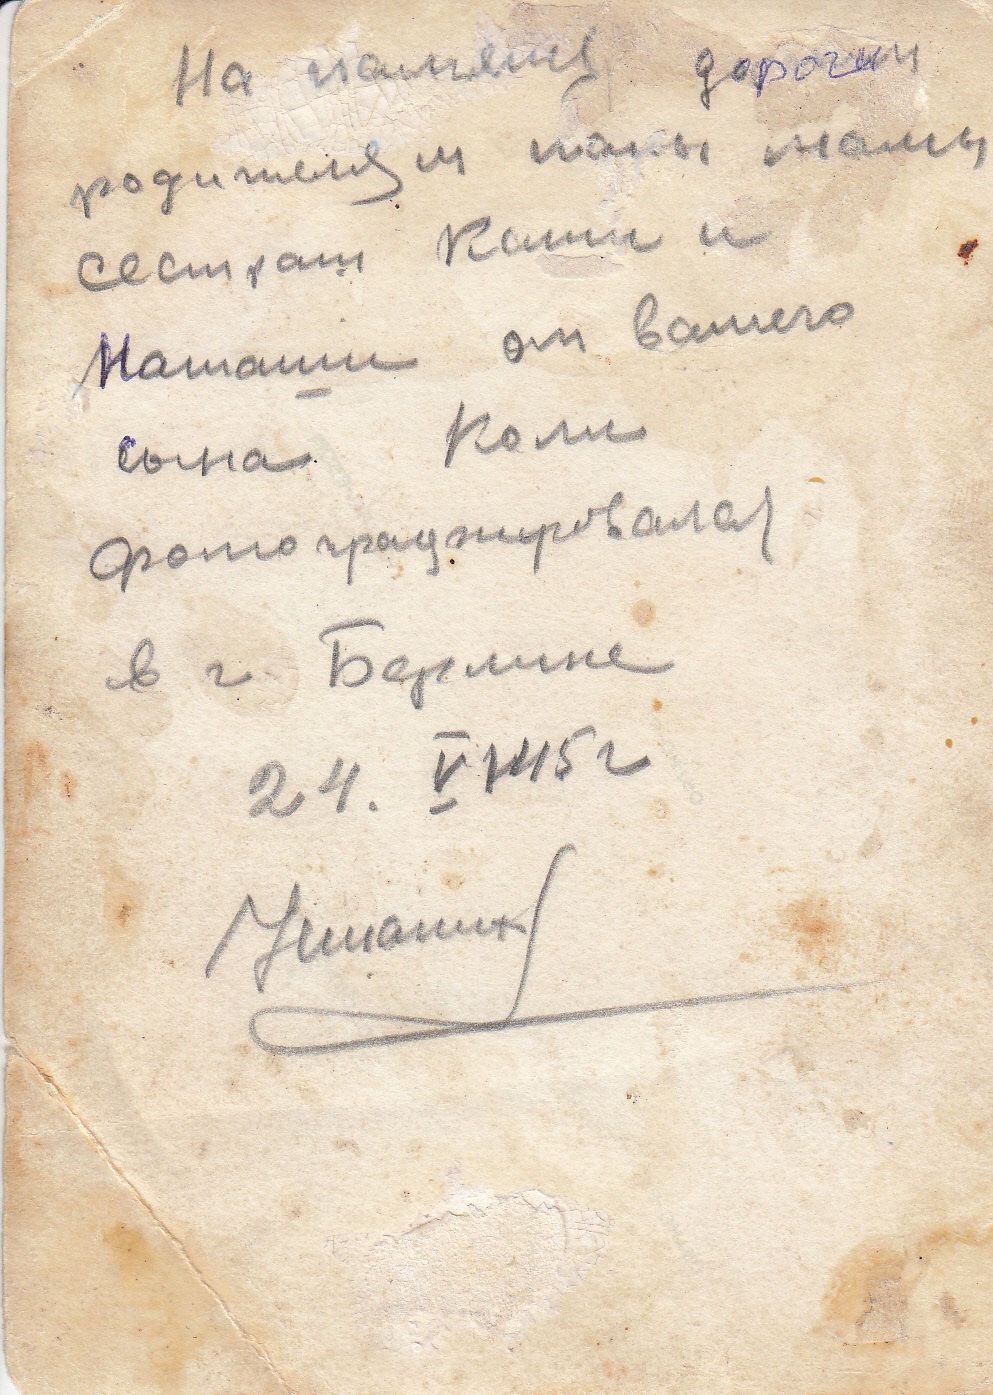 На память дорогим
родителям папы мамы
сестрам Кати и
Наташи от вашего
сына Коли
фотографировался
в г. Берлине
24. V 45 г